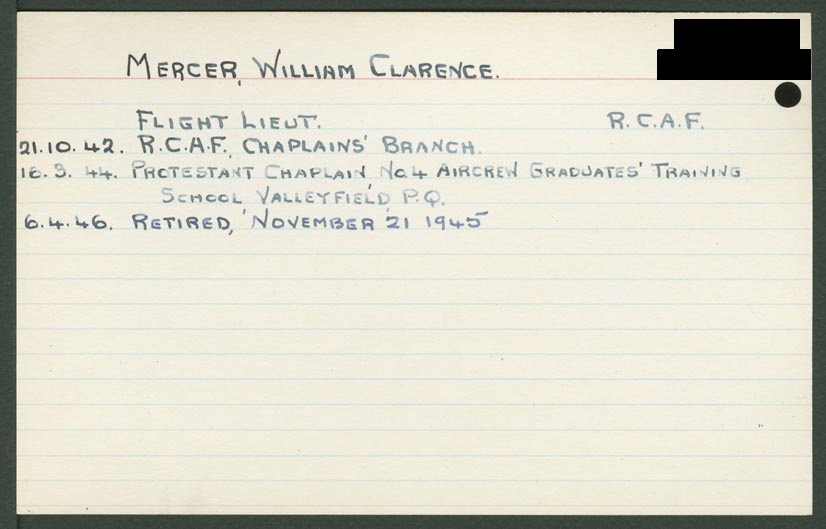 MERCER, WILLIAM CLARENCE.
FLIGHT LIEUT. R.C.A.F.
21.10.42. R.C.A.F., CHAPLAINS' BRANCH.
16.3.44. PROTESTANT CHAPLAIN No.4 AIRCREW GRADUATES' TRAINING
SCHOOL VALLEYFIELD, P.Q.
6.4.46. RETIRED, NOVEMBER 21 1945